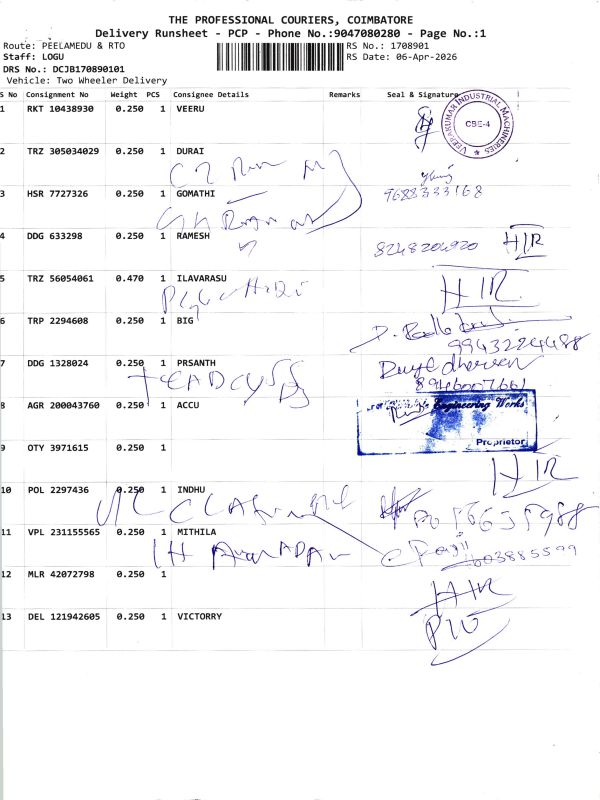 THE PROFESSIONAL COURIERS, COIMBATORE
Delivery Runsheet - PCP - Phone No.:9047080280 - Page No.:1
Route: PEELAMEDU & RTO RS No.: 1708901
Staff: LOGU RS Date: 06-Apr-2026
DRS No.: DCJB170890101
Vehicle: Two Wheeler Delivery
S No Consignment No Weight PCS Consignee Details Remarks Seal & Signature
1 RKT 10438930 0.250 1 VEERU
VEERAKUMAR INDUSTRIAL MACHINERIES
CBE-4
2 TRZ 305034029 0.250 1 DURAI
3 HSR 7727326 0.250 1 GOMATHI
9688333168
4 DDG 633298 0.250 1 RAMESH
8248204920 HIR
5 TRZ 56054061 0.470 1 ILAVARASU
HIR
6 TRP 2294608 0.250 1 BIG
9943224488
7 DDG 1328024 0.250 1 PRSANTH
8946007661
8 AGR 200043760 0.250 1 ACCU
Engineering Works
Proprietor
9 OTY 3971615 0.250 1
HIR
10 POL 2297436 0.250 1 INDHU
11 VPL 231155565 0.250 1 MITHILA
12 MLR 42072798 0.250 1
HIR
13 DEL 121942605 0.250 1 VICTORRY